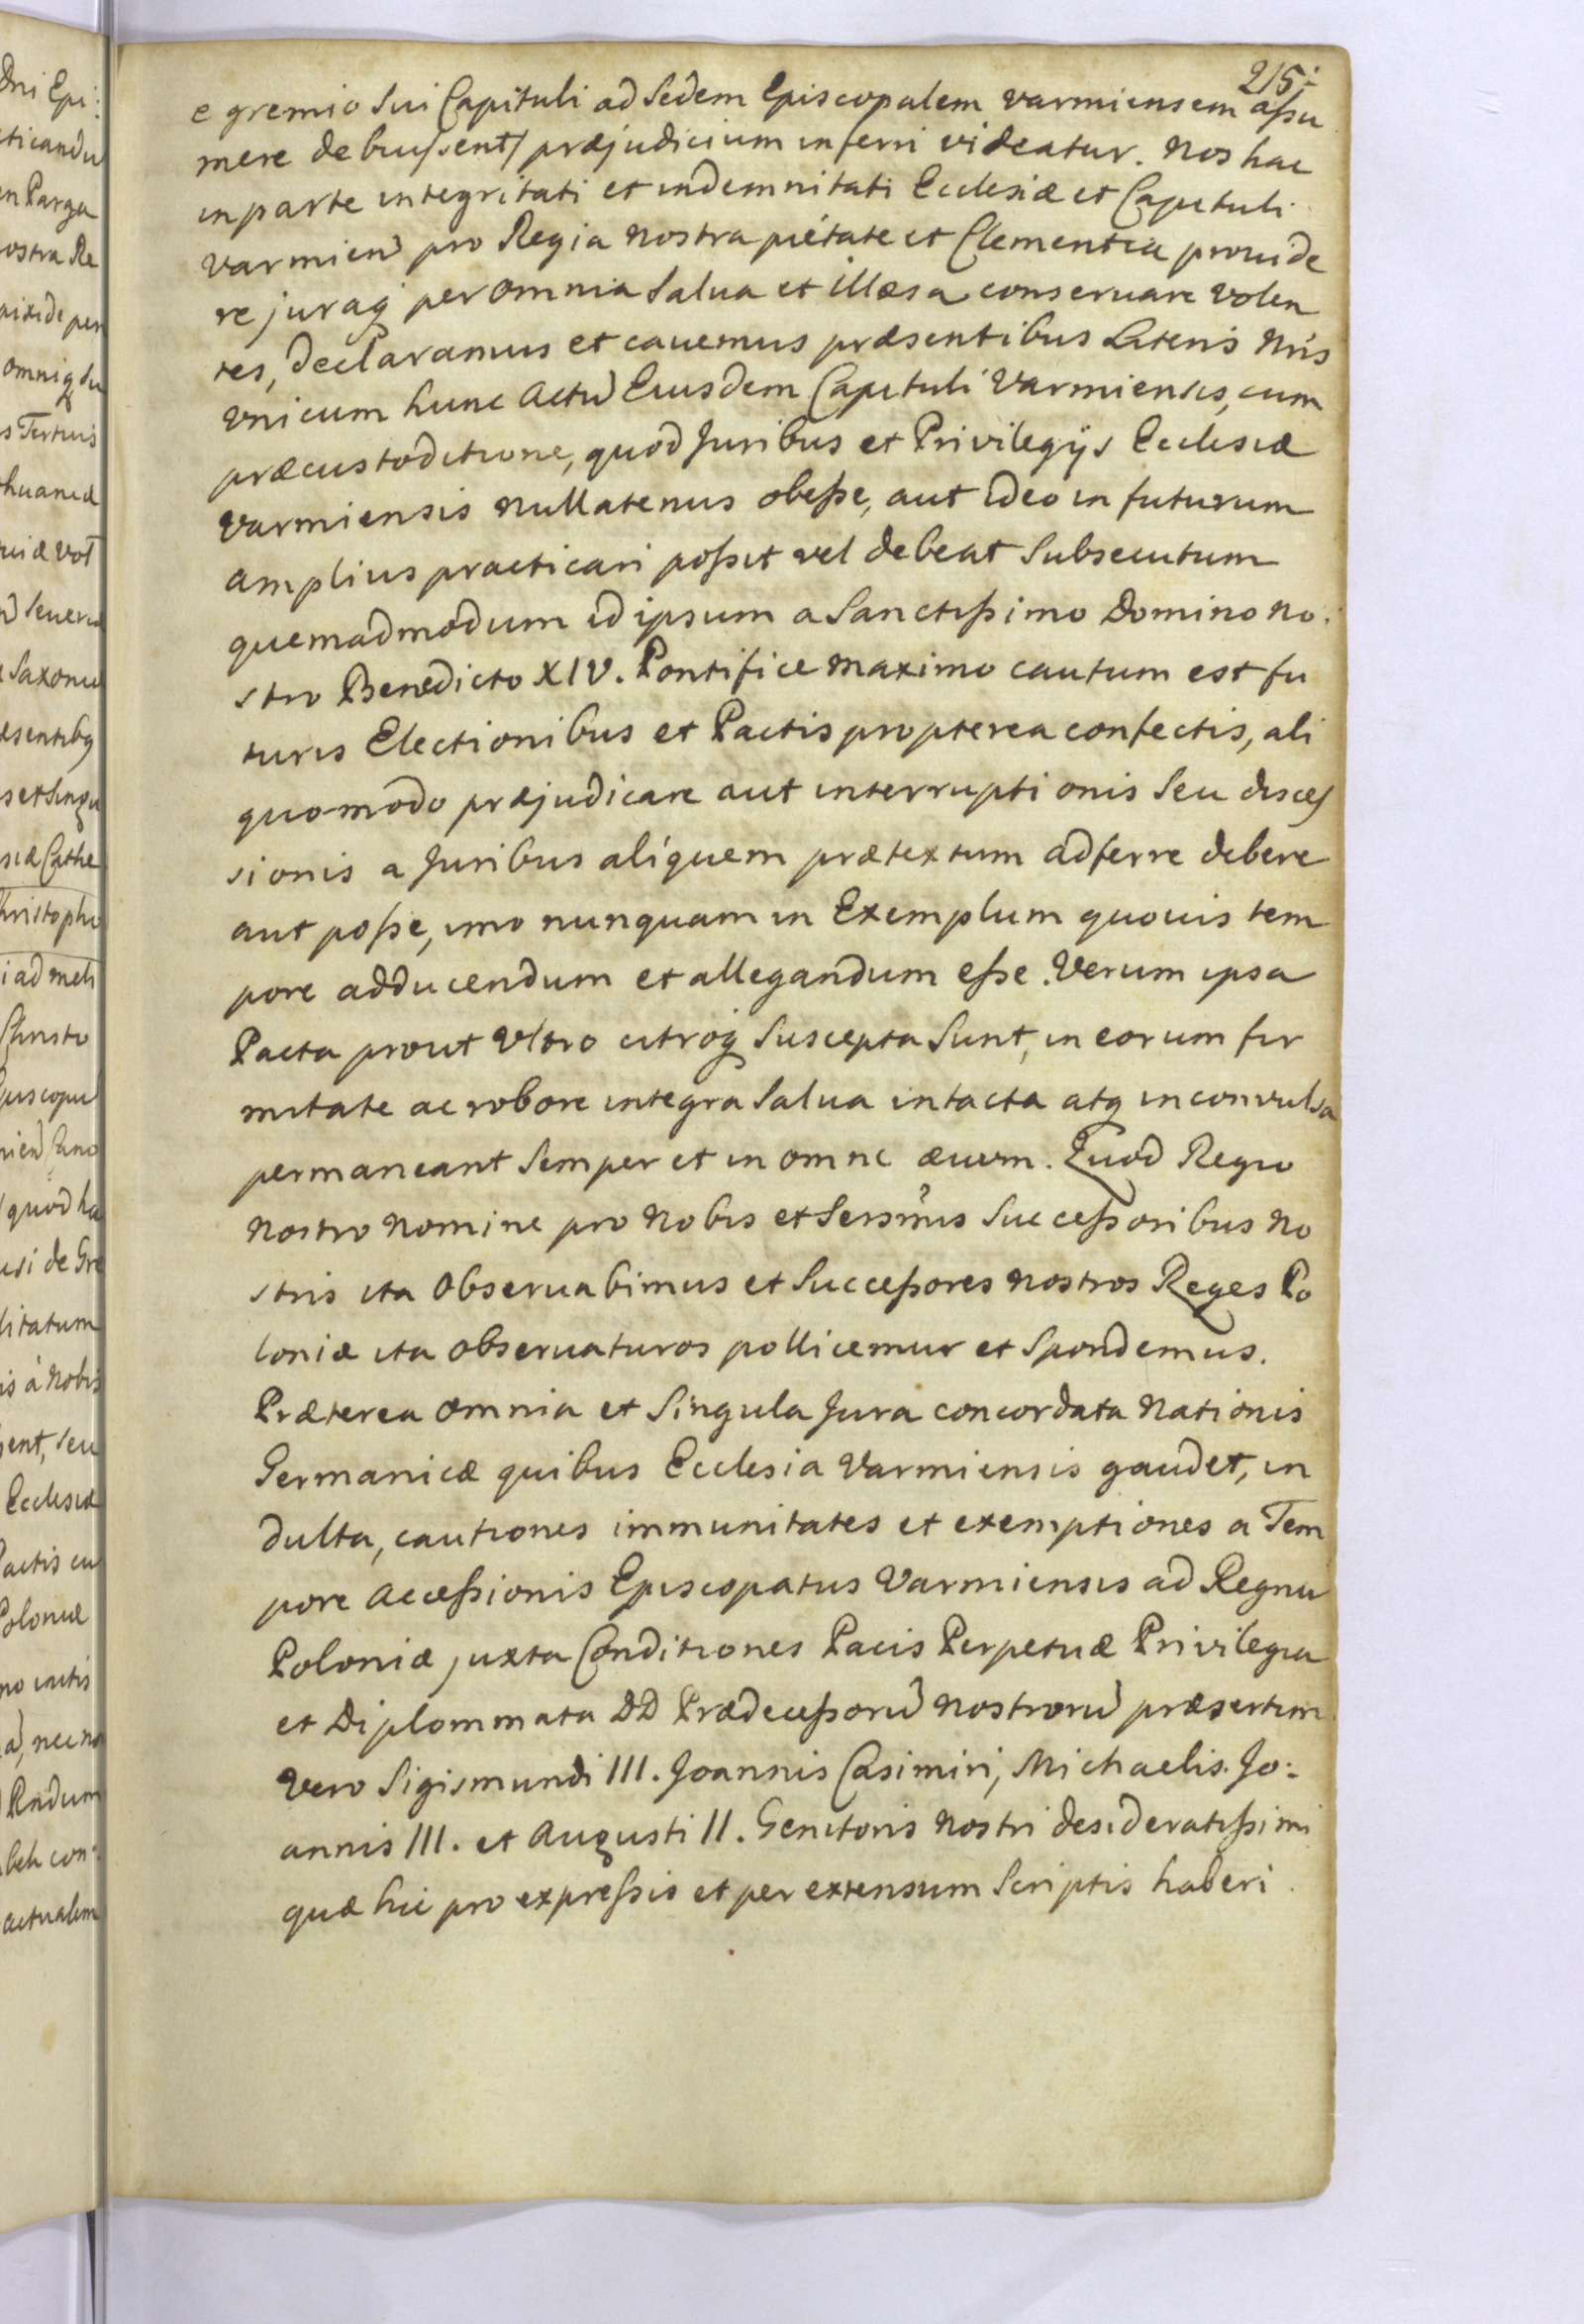 215.
e gremio Sui Capituli ad Sedem Episcopalem varmiensem assu
mere debuissent/ præjudicium inferri videatur. Nos hac
in parte integritati et indemnitati Ecclesiæ et Capituli
varmien pro Regia Nostra piétate et Clementia prouide
re juraq per omnia Salua et illæsa conseruare Volen
tes, declaramus et cauemus præsentibus Literis Nris
Vnicum hunc Actu Eiusdem Capituli Varmiensis, cum
præcustoditione, quod Juribus et Privilegijs Ecclesiæ
Varmiensis nullatenus obesse, aut ideo in futurum
amplius practicari possit vel debeat Subsecutum
quemadmodum id ipsum a Sanctissimo Domino No
stro Benedicto XIV. Pontifice Maximo cautum est fu
turis Electionibus et Pactis propterea confectis, ali
quomodo præjudicare aut interruptionis Seu disces
sionis a Juribus aliquem prætextum adferre debere
aut posse, imo nunquam in Exemplum quouis tem
pore adducendum et allegandum esse. Verum ipsa
Pacta prout Vltro citroq Suscepta Sunt, in eorum fir
mitate ac robore integra Salua intacta atq inconvulsa
permaneant Semper et in omne æuum. Quod Regio
Nostro Nomine pro Nobis et Sersmis Successoribus No
stris ita Observabimus et Successores Nostros Reges Po
loniæ ita observaturos pollicemur et Spondemus.
Præterea omnia et Singula Jura concordata Nationis
Germanicæ quibus Ecclesia Varmiensis gaudet, in
dulta, cautiones immunitates et exemptiones a Tem
pore Accessionis Episcopatus Varmiensis ad Regnu
Poloniæ juxta Conditiones Pacis Perpetuæ Privilegia
et Diplommata DD Prædecessoru Nostroru præsertim
Vero Sigismundi III. Joannis Casimiri, Michaelis. Jo:
annis III. et Augusti II. Genitoris Nostri desideratissimi
quæ hic pro expressis et per extensum Scriptis haberi